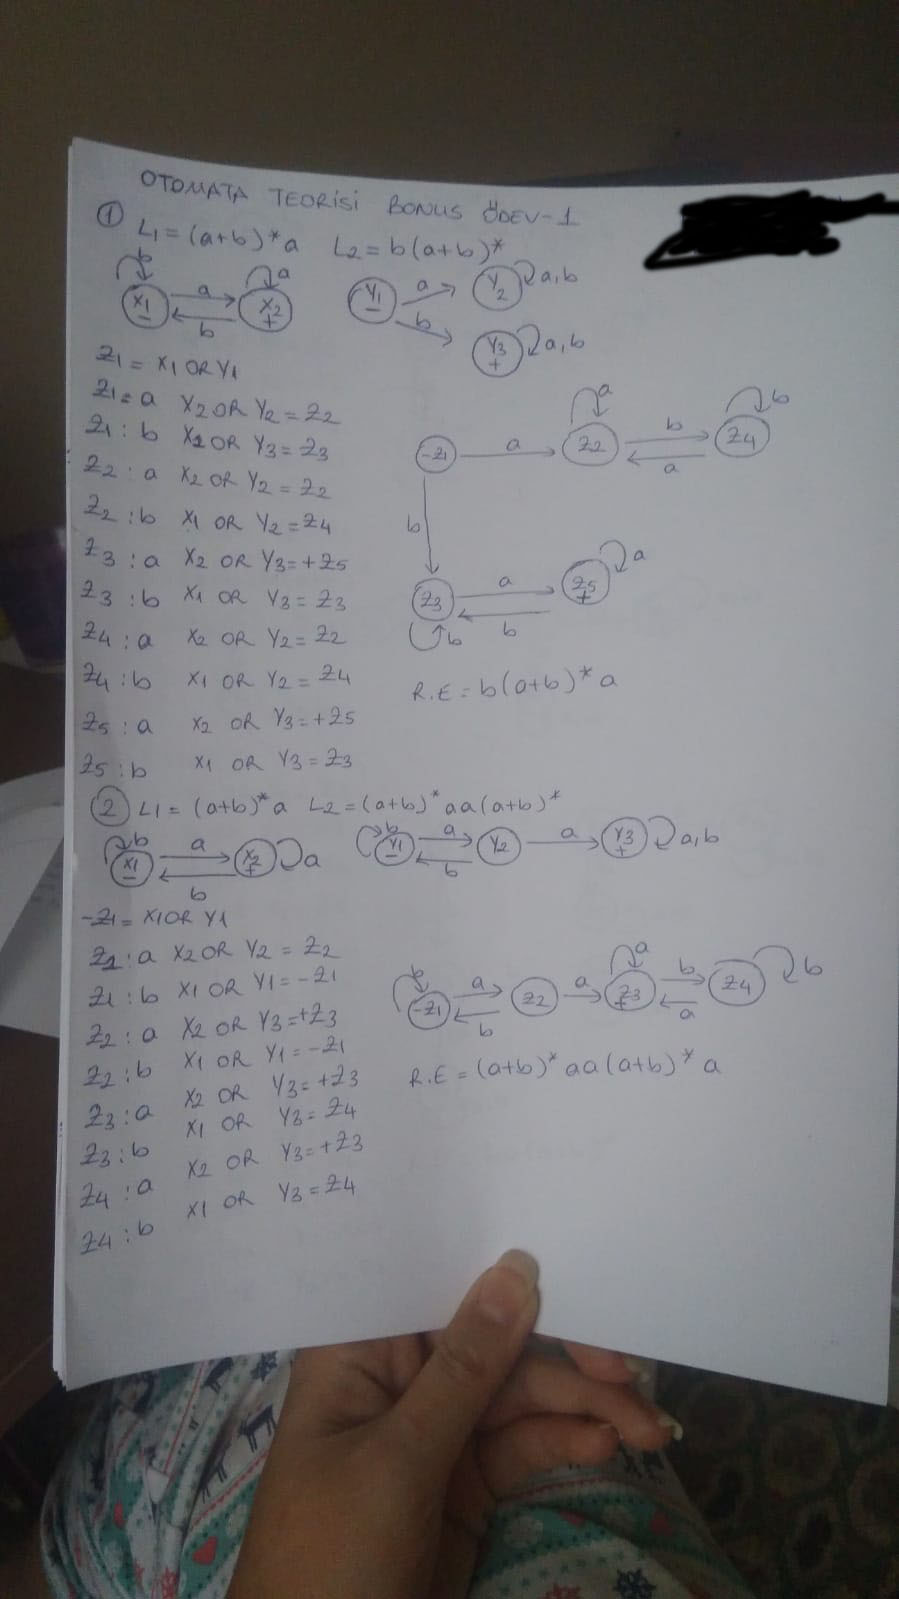 OTOMATA TEORİSİ BONUS ÖDEV-1
① L1=(a+b)*a L2=b(a+b)*
b a x1 - a b x2 + y1 - a b y2 a,b y3 + a,b
Z1 = X1 OR Y1
Z1=a X2 OR Y2 = Z2
Z1: b X1 OR Y3 = Z3
Z2: a X2 OR Y2 = Z2
Z2:b X1 OR Y2 = Z4
Z3: a X2 OR Y3=+Z5
Z3: b X1 OR Y3 = Z3
Z4: a X2 OR Y2= Z2
Z4:b X1 OR Y2 = Z4
Z5: a X2 OR Y3=+Z5
Z5:b X1 OR Y3 = Z3
-Z1 a Z2 a b a Z4 b
b
Z3 a b Z5 + a
b
R.E = b(a+b)*a
② L1= (a+b)*a L2=(a+b)*aa(a+b)*
b x1 - a b x2 + a b y1 - a b y2 a y3 + a,b
-Z1= X1OR Y1
Z1: a X2 OR Y2 = Z2
Z1: b X1 OR Y1=-Z1
Z2: a X2 OR Y3=+Z3
Z2:b X1 OR Y1=-Z1
Z3: a X2 OR Y3= +Z3
Z3:b X1 OR Y3= Z4
Z4: a X2 OR Y3=+Z3
Z4: b X1 OR Y3=Z4
b -Z1 a b Z2 a Z3 + a b a Z4 b
R.E =(a+b)*aa(a+b)*a